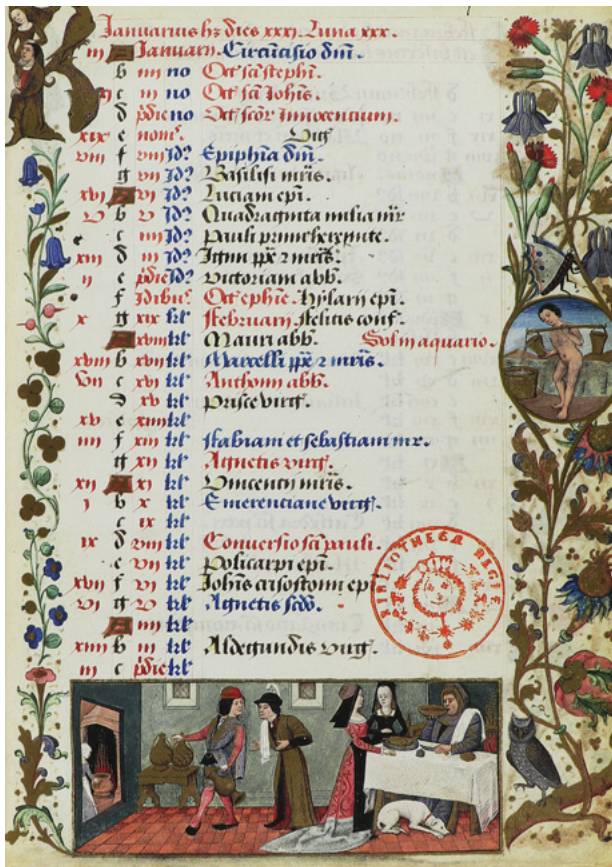 Januarius hz dies xxxi. Luna xxx.
iii A Januarii Circūcisio dñi.
b iiii no Oct̄ sc̄i stephī.
xi c iii no Oct̄ sc̄i Joh̄is.
d p̄die no Oct̄ sc̄or Innocentium.
xix e nonas. Vigꝭ
viii f viii Idꝰ Epiphīa dñi.
g vii Idꝰ Basilisi mr̄is.
xvi A vi Idꝰ Luciani ep̄i.
v b v Idꝰ Quadraginta milia mr̄
c iiii Idꝰ Pauli primi heremite.
xiii d iii Idꝰ Igini pp̄e ⁊ mr̄is.
ii e p̄die Idꝰ Victoriani abb̄.
f Idibus Oct̄ ephīe. Hylarii ep̄i.
x g xix kl̄ februarii felicis conf.
A xviii kl̄ Mauri abb̄. Sol in aquario.
xviii b xvii kl̄ Marcelli pp̄e ⁊ mr̄is.
vii c xvi kl̄ Anthonii abb̄.
d xv kl̄ Prisce virgꝭ.
xv e xiiii kl̄
iiii f xiii kl̄ fabiani et sebastiani mr̄.
g xii kl̄ Agnetis virgꝭ.
xii A xi kl̄ Vincentii mr̄is.
i b x kl̄ Emerenciane virgꝭ.
c ix kl̄
ix d viii kl̄ Conversio sc̄i pauli.
e vii kl̄ Policarpi ep̄i.
xvii f vi kl̄ Joh̄is crisostomi ep̄i
vi g v kl̄ Agnetis sc̄do.
A iiii kl̄
xiiii b iii kl̄ Aldegundis virgꝭ.
iii c p̄die kl̄
BIBLIOTHECÆ REGIÆ